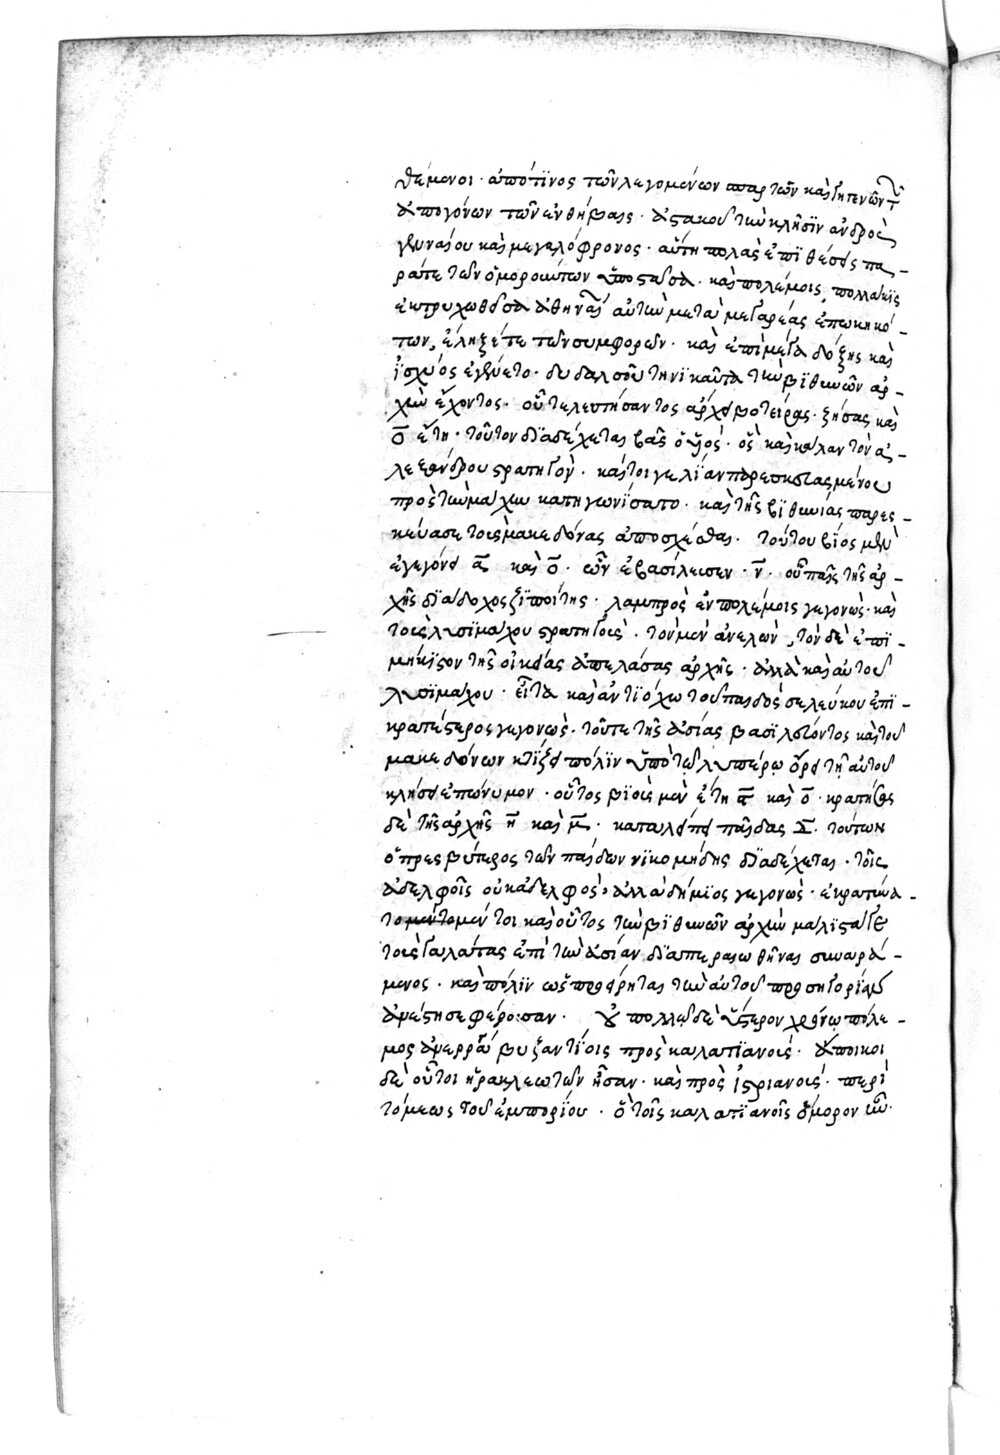 θέμενοι· ἀπό τϊνος τῶν λεγομένων σπαρτῶν καὶ γηγενῶν τῶν
ἀπογόνων τῶν ἐν θήβαις· ἀστακοῦ τὴν κλῆσϊν ἀνδρὸς
γενναίου καὶ μεγαλόφρονος· αὕτη πολλὰς ἐπϊθέσεις πα-
ρά τε τῶν ὁμορούντων ὑποστᾶσα· καὶ πολέμοις πολλάκϊς
ἐκτρυχωθεῖσα ἀθηναίων αὐτὴν μετὰ μεγαρέας ἐπῳκηκό-
των, ἔληξέ τε τῶν συμφορῶν· καὶ ἐπὶ μέγα δόξης καὶ
ἰσχύος ἐγένετο· δυδαλσοῦ τηνϊκαῦτα τὴν βϊθυνῶν ἀρ-
χὴν ἔχοντος· οὗ τελευτήσαντος ἄρχει βοτείρας· ζήσας καὶ
ο̅ ἔτη· τοῦτον δϊαδέχεται βᾶς ὁ υἱός· ὃς καὶ καλαντὸν ἀ-
λεξάνδρου στρατηγόν· καίτοι γε λίαν παρεσκευασμένον
πρὸς τὴν μάχην κατηγωνίσατο· καὶ τῆς βϊθυνίας παρεσ-
κεύασε τοὺς μακεδόνας ἀποσχέσθαι· τούτου βίος μὲν
ἐγεγόνει α̅ καὶ ο̅· ὧν ἐβασίλευσεν· ν̅· οὗ παῖς τῆς ἀρ-
χῆς δϊάδοχος ζϊποίτης· λαμπρὸς ἐν πολέμοις γεγονώς· καὶ
τοὺς λυσϊμάχου στρατηγούς· τὸν μὲν ἀνελών, τὸν δὲ ἐπϊ-
μήκϊστον τῆς οἰκείας ἀπελάσας ἀρχῆς· ἀλλὰ καὶ αὐτοῦ
λυσϊμάχου· εἶτα καὶ ἀντϊόχου τοῦ παιδὸς σελεύκου ἐπϊ-
κρατέστερος γεγονώς· τοῦ τε τῆς ἀσίας βασϊλεύοντος καὶ τοῦ
μακεδόνων κτίζει πόλϊν ὑπὸ τῷ λυπέρῳ ὄρει τῇ αὑτοῦ
κλήσει ἐπώνυμον· οὗτος βϊοὺς μὲν ἔτη α̅ καὶ ο̅· κρατήσας
δὲ τῆς ἀρχῆς η̅ καὶ μ̅· καταλείπει παῖδας δ̅· τούτων
ὁ πρεσβύτερος τῶν παίδων νϊκομήδης δϊαδέχεται· τοῖς
ἀδελφοῖς οὐκ ἀδελφός, ἀλλὰ δήμϊος γεγονώς· ἐκρατύνα-
το μέντο μέντοι καὶ οὗτος τὴν βϊθυνῶν ἀρχὴν μάλϊστά γε
τοὺς γαλάτας ἐπὶ τὴν ἀσίαν δϊαπεραιωθῆναι συναρά-
μενος· καὶ πόλϊν ὡς προείρηται τὴν αὑτοῦ προσηγορίαν
ἀνέστησε φέρουσαν· οὐ πολλῷ δὲ ὕστερον χρόνῳ πόλε-
μος ἀνερράγη βυζαντίοις πρὸς καλατϊανούς· ἄποικοι
δὲ οὗτοι ἡρακλεωτῶν ἦσαν· καὶ πρὸς ἰστριανούς· περὶ
τόμεως τοῦ ἐμπορΐου· ὃ τοῖς καλατϊανοῖς ὅμορον ἦν·